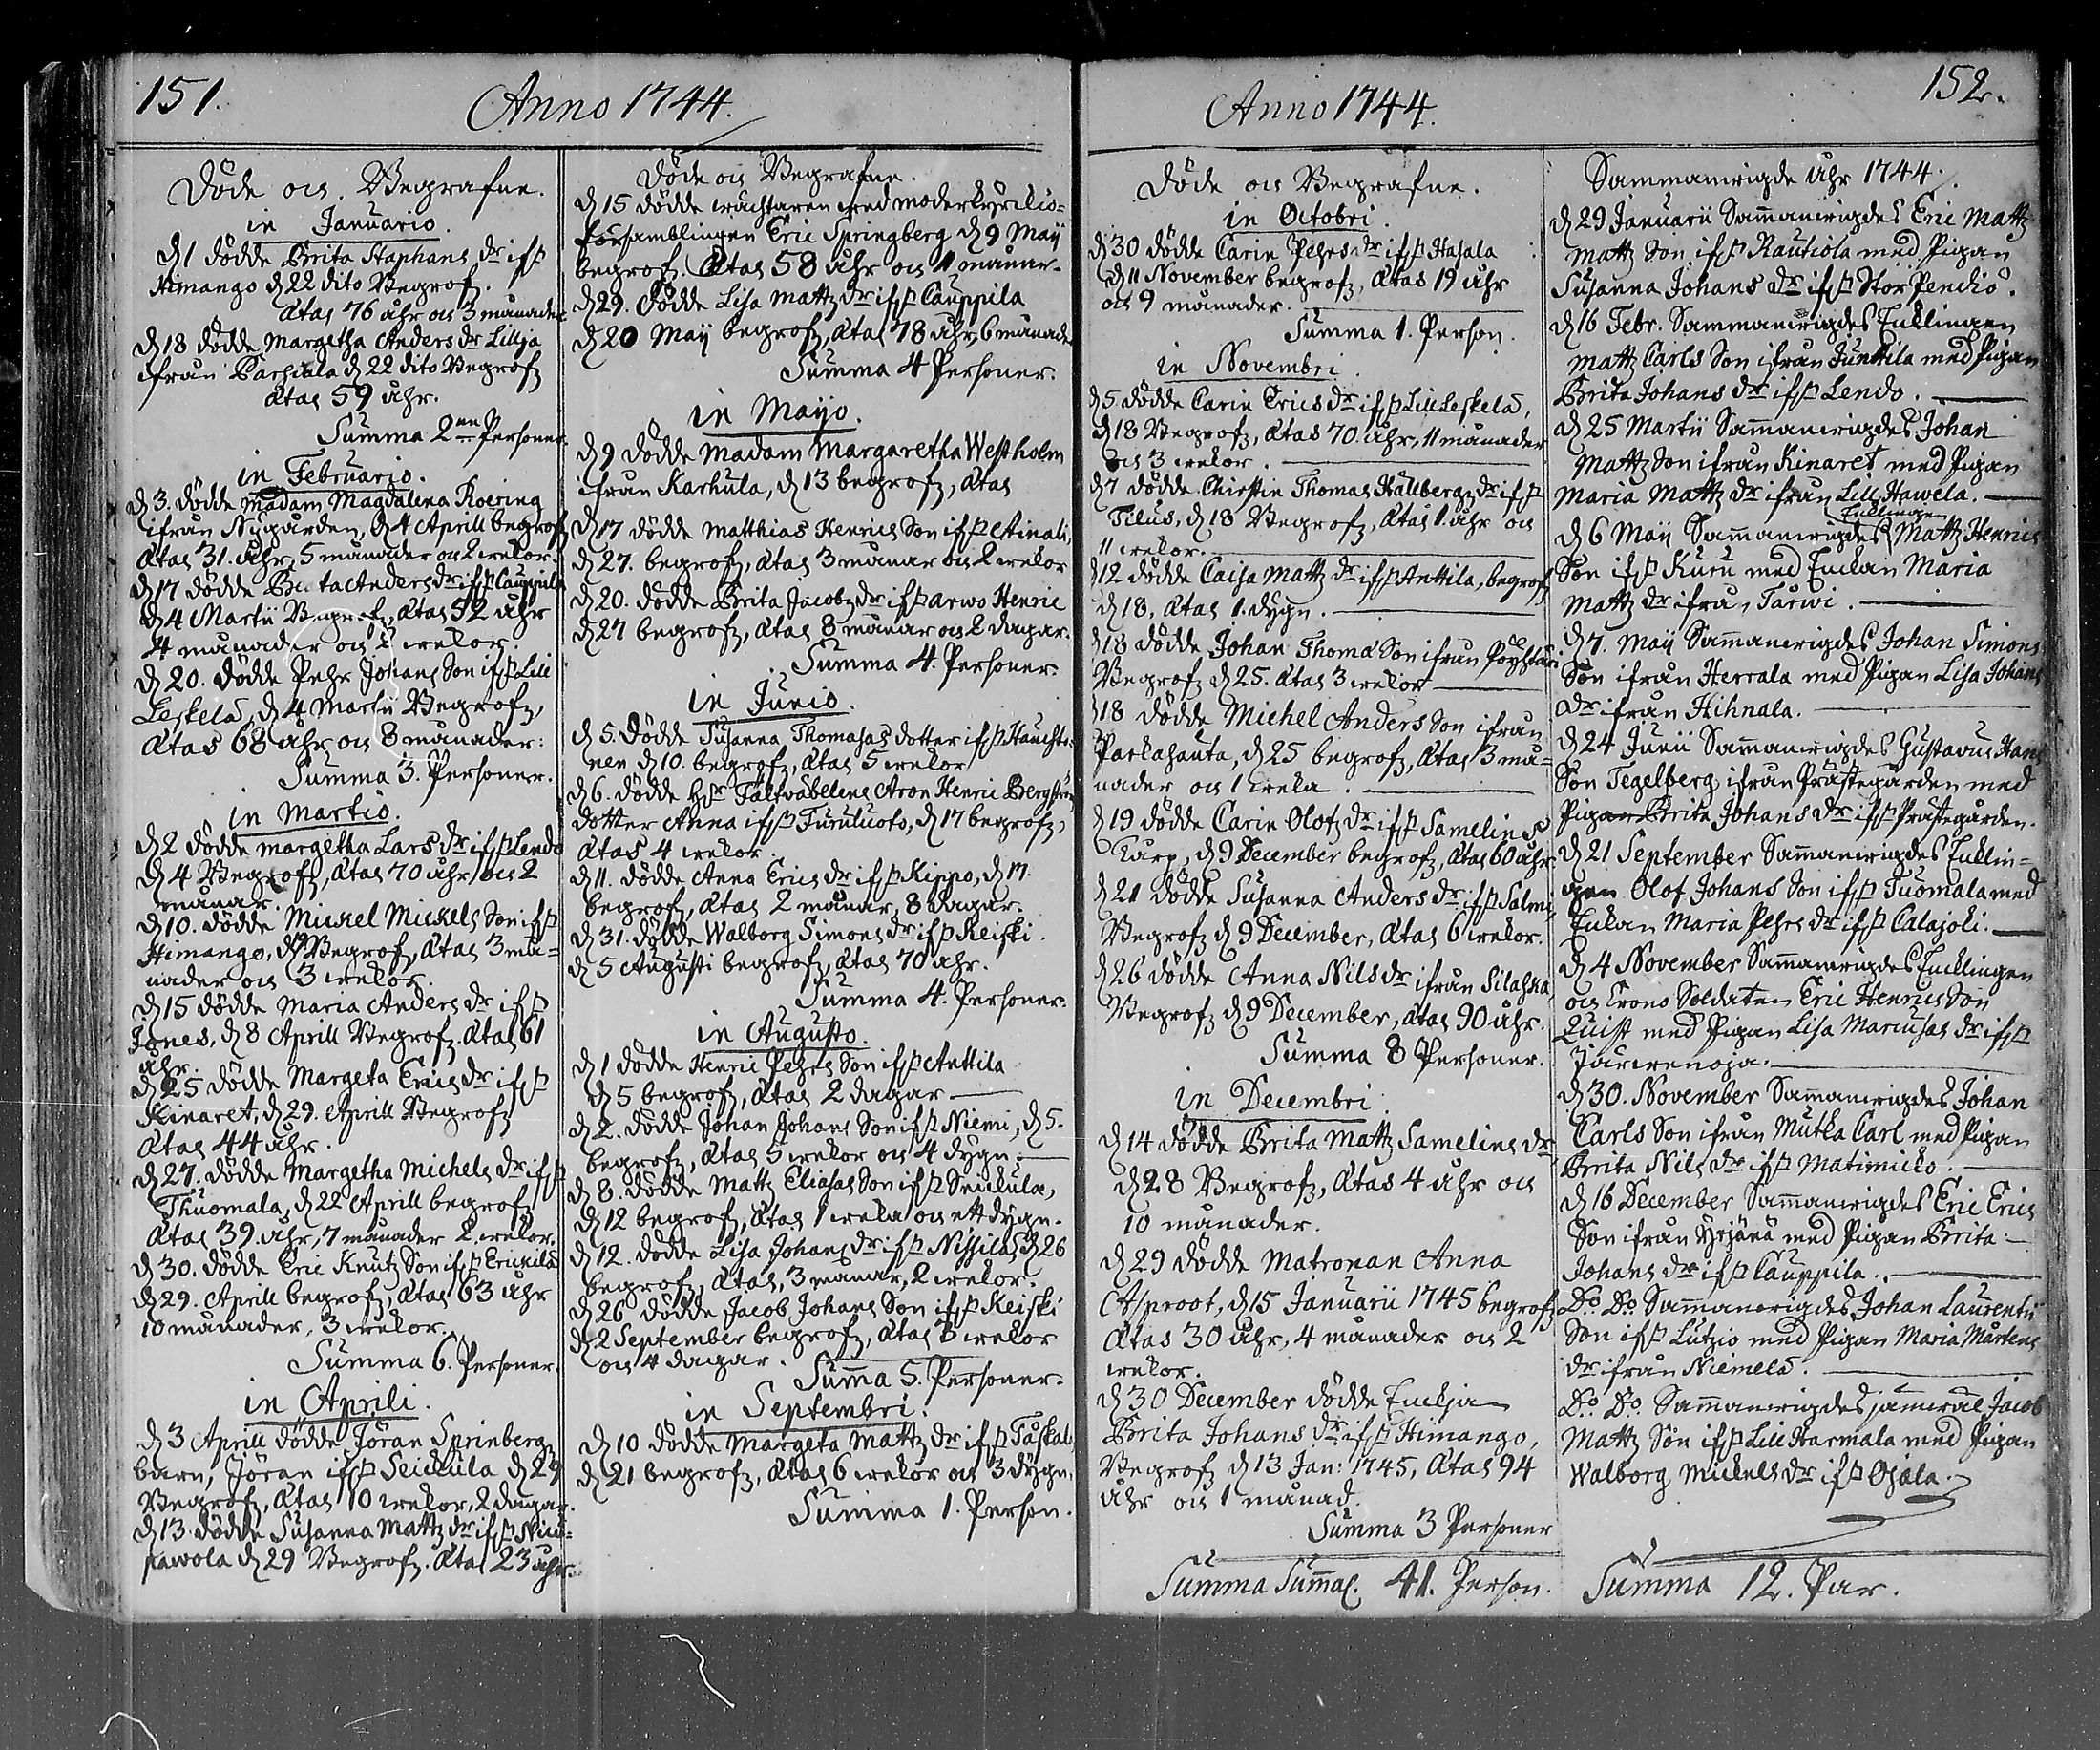 151.
Anno 1744.
Döde och Begrafne.
in Januario.
d 1 dödde Brita Staphans dr if:n
Himango d 22 dito Begrofz.
Ætas 76 åhr och 3 månader
d 18 dödde Margetha Anders dr Lillja
ifrån Paschala d 22 dito Begrofz
Ætas 59 åhr.
Summa 2ne Personer.
in Februario.
d 3. dödde Madam Magdalena Roering
ifrån Nygården, d 4 Aprill begrofz
Ætas 31. åhr, 5 månader och 2 wekor.
d 17 dödde Beata Anders dr if:n Cauppila
d 4 Martii Begrofz, Ætas 52 åhr
4 månader och 2 wekor.
d 20. dödde Pehr Johans Son if:n Lill
Leskelä, d 4 Martii Begrofz,
Ætas 68 åhr och 8 månader:
Summa 3. Personer.
in Martio.
d 2 dödde Margetha Lars dr if:n Lendo
d 4 Begrofz, Ætas 70 åhr och 2
månar.
d 10. dödde Mickel Mickels Son if:n
Himango, d Begrof, Ætas 3 må=
nader och 3 wekor.
d 15 dödde Maria Anders dr if:n
Jones, d 8 Aprill Begrofz. Ætas 61
åhr.
d 25 dödde Margeta Erics dr if:n
Kinaret, d 29. Aprill Begrofz
Ætas 44 åhr.
d 27. dödde Margetha Michels dr if:n
Thuomala, d 22 Aprill begrofz
Ætas 39. åhr, 7 månader 2 wekor.
d 30. dödde Eric Knutz Son if:n Erickilä
d 29. Aprill begrofz, Ætas 63 åhr
10 månader, 3 wekor.
Summa 6. Personer.
in Aprili.
d 3 Aprill dödde Jöran Sprinbergz
barn, Jöran if:n Seickula d 29
Begrofz, Ætas 10 wekor, 2 dagar.
d 13 dödde Susanna Mattz dr if:n
pawola d 29 Begrofz. Ætas 23 åhr.
Döde och Begrafne.
d 15 dödde wächtaren wed moderkyrckio=
församblingen Eric Springberg d 9 Maij
begrofz. Ætas 58 åhr och 11 månar.
d 29. dödde Lisa Mattz dr if:n Cauppila
d 20 Maij begrofz, Ætas 78 åhr, 6 månader
Summa 4 Personer.
in Mayo.
d 9 dödde Madam Margaretha Westholm
ifrån Karhula, d 13 begrofz, Ætas
d 17 dödde Matthias Henrics Son if:n Ainali,
d 27. begrofz, Ætas 3 månar och 2 wekor
d 20. dödde Brita Jacobz dr if:n Arwo Henric
d 27 begrofz, Ætas 8 månar och 2 dagar.
Summa 4. Personer.
in Junio.
d 5. dödde Susanna Thomasas dotter if:n
nen d 10. begrofz, Ætas 5 wekor
d 6. dödde Hr Fältwäbelens Aron Henric Bergström
dotter Anna if:n Furuluoto, d 17 begrofz,
Ætas 4 wekor.
d 11. dödde Anna Erics dr if:n Kippo, d 17.
begrofz, Ætas 2 månar, 8 dagar.
d 31. dödde Walborg Simons dr if:n Keiski.
d 5 Augusti begrofz, Ætas 70 åhr.
Summa 4. Personer.
in Augusto.
d 1 dödde Henric Pehrs Son if:n Anttila
d 5 begrofz, Ætas 2 dagar
d 2. dödde Johan Johans Son if:n Niemi, d 5.
begrofz, Ætas 5 wekor och 4 dygn.
d 8. dödde Mattz Eliasas Son if:n Seickula,
d 12 begrofz, Ætas 1 weka och ett dygn.
d 12. dödde Lisa Johans dr if:n Nissilas d 26
begrofz, Ætas, 3 månar, 2 wekor.
d 26 dödde Jacob Johans Son if:n Keiski
d 2 September begrofz, Ætas 3 wekor
och 4 dagar.
Summa 5. Personer.
in Septembri.
d 10 dödde Margeta Mattz dr if:n Taskala
d 21 begrofz, Ætas 6 wekor och 3 dygn.
Summa 1. Person.
Anno 1744.
152.
Döde och Begrafne.
in Octobri.
d 30 dödde Carin Pehrs dr if:n Hasala
d 11 November begrofz, Ætas 19 åhr
och 9 månader.
Summa 1. Person.
in Novembri.
d 5 dödde Carin Erics dr if:n Lill Leskelä,
d 18 Begrofz, Ætas 70. åhr, 11 månader
och 3 wekor.
d 7 dödde Chirstin Thomas Hällbergz dr if:n
Tilus, d 18 Begrofz, Ætas 1. åhr och
11 wekor.
d 12 dödde Caisa Mattz dr if:n Anttila, begrofz
d 18. Ætas 1. dygn.
d 18 dödde Johan Thoma Son ifrån
Begrofz d 25. Ætas 3 wekor
d 18 dödde Michel Anders Son ifrån
Parkahauta, d 25 begrofz, Ætas 3 må=
nader och 1 weka.
d 19 dödde Carin Olofz dr if:n Samelin
Karp, d 9 December begrofz, Ætas 60 åhr
d 21 dödde Susanna Anders dr if:n Salmi,
Begrofz d 9 December, Ætas 6 wekor.
d 26 dödde Anna Nils dr ifrån Silahka,
Begrofz d 9 December, Ætas 90 åhr.
Summa 8 Personer.
in Decembri
d 14 dödde Brita Mattz Samelins dr
d 28 Begrofz, Ætas 4 åhr och
10 månader.
d 29 dödde Matronan Anna
Asproot, d 15 Januarii 1745 begrofz
Ætas 30 åhr, 4 månader och 2
wekor.
d 30 December dödde Enckja
Brita Johans dr if:n Himango,
Begrofz d 13 Jan: 1745, Ætas 94
åhr och 1 månad.
Summa 3 Personer
Summa Summar. 41. Person.
Sammanwigde åhr 1744.
d 29 Januarii Sammanwigdes Eric Mattz
Mattz Son if:n Rautiola med Pigan
Susanna Johans dr if:n Stor Penckio.
d 16 Febr. Sammanwigdes Encklingen
Mattz Carls Son ifrån Junttila med Pigan
Brita Johans dr if:n Lendo.
d 25 Martii Sammanwigdes Johan
Mattz Son ifrån Kinaret med Pigan
Maria Mattz dr ifrån Lill Hawela.
Encklingen
d 6 Maij Sammanwigdes Mattz Henrics
Son if:n Kuru med Enckan Maria
Mattz dr ifrån Tarwi.
d 7. Maij Sammanwigdes Johan Simons
Son ifrån Herrala med Pigan Lisa Johans
dr ifrån Hihnala.
d 24 Junii Sammanwigdes Gustavus Hans
Son Tegelberg ifrån Prästegården med
Pigan Brita Johans dr if:n Prästegården.
d 21 September Sammanwigdes Encklin=
gen Olof Johans Son if:n Tuomala med
Enckan Maria Pehrs dr if:n Calajoki.
d 4 November Sammanwigdes Encklingen
och Crono Soldaten Eric Henrics Son
Quist med Pigan Lisa Marcusas dr if:n
Jarwenoja.
d 30. November Sammanwigdes Johan
Carls Son ifrån Mutka Carl med Pigan
Brita Nils dr if:n Matimicko.
d 16 December Sammanwigdes Eric Erics
Son ifrån Yrjänä med Pigan Brita
Johans dr if:n Cauppila.
Do. Do. Sammanwigdes Johan Laurentii
Son if:n Lutzio med Pigan Maria Mårtens
dr ifrån Niemelä.
Do. Do. Sammanwigdes jämwäl Jacob
Mattz Son if:n Lill Harmala med Pigan
Walborg Mickels dr if:n Ojala.
Summa 12. Par.